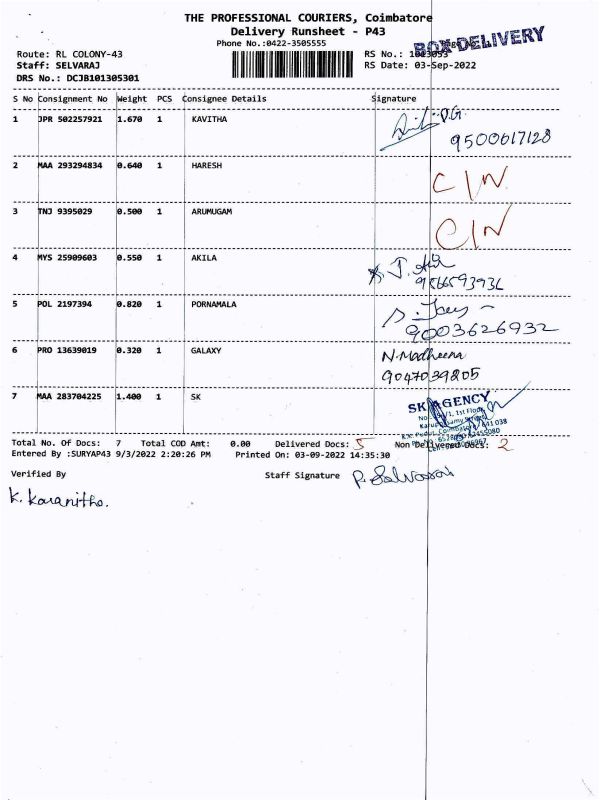 THE PROFESSIONAL COURIERS, Coimbatore
Delivery Runsheet - P43
Phone No.:0422-3505555
BOX DELIVERY
Route: RL COLONY-43
RS No.:
Staff: SELVARAJ
RS Date: 03-Sep-2022
DRS No.: DCJB101305301
S No Consignment No Weight PCS Consignee Details Signature
1 JPR 502257921 1.670 1 KAVITHA
9500617128
2 MAA 293294834 0.640 1 HARESH C/N
3 TNJ 9395029 0.500 1 ARUMUGAM C/N
4 MYS 25909603 0.550 1 AKILA
5 POL 2197394 0.820 1 PORNAMALA
9003626932
6 PRO 13639019 0.320 1 GALAXY N.Madheena
9047039205
7 MAA 283704225 1.400 1 SK
SK AGENCY
Total No. Of Docs: 7 Total COD Amt: 0.00 Delivered Docs: 5 Non Delivered Docs: 2
Entered By :SURYAP43 9/3/2022 2:20:26 PM Printed On: 03-09-2022 14:35:30
Verified By Staff Signature P. Selvaraj
K. Karanitho.